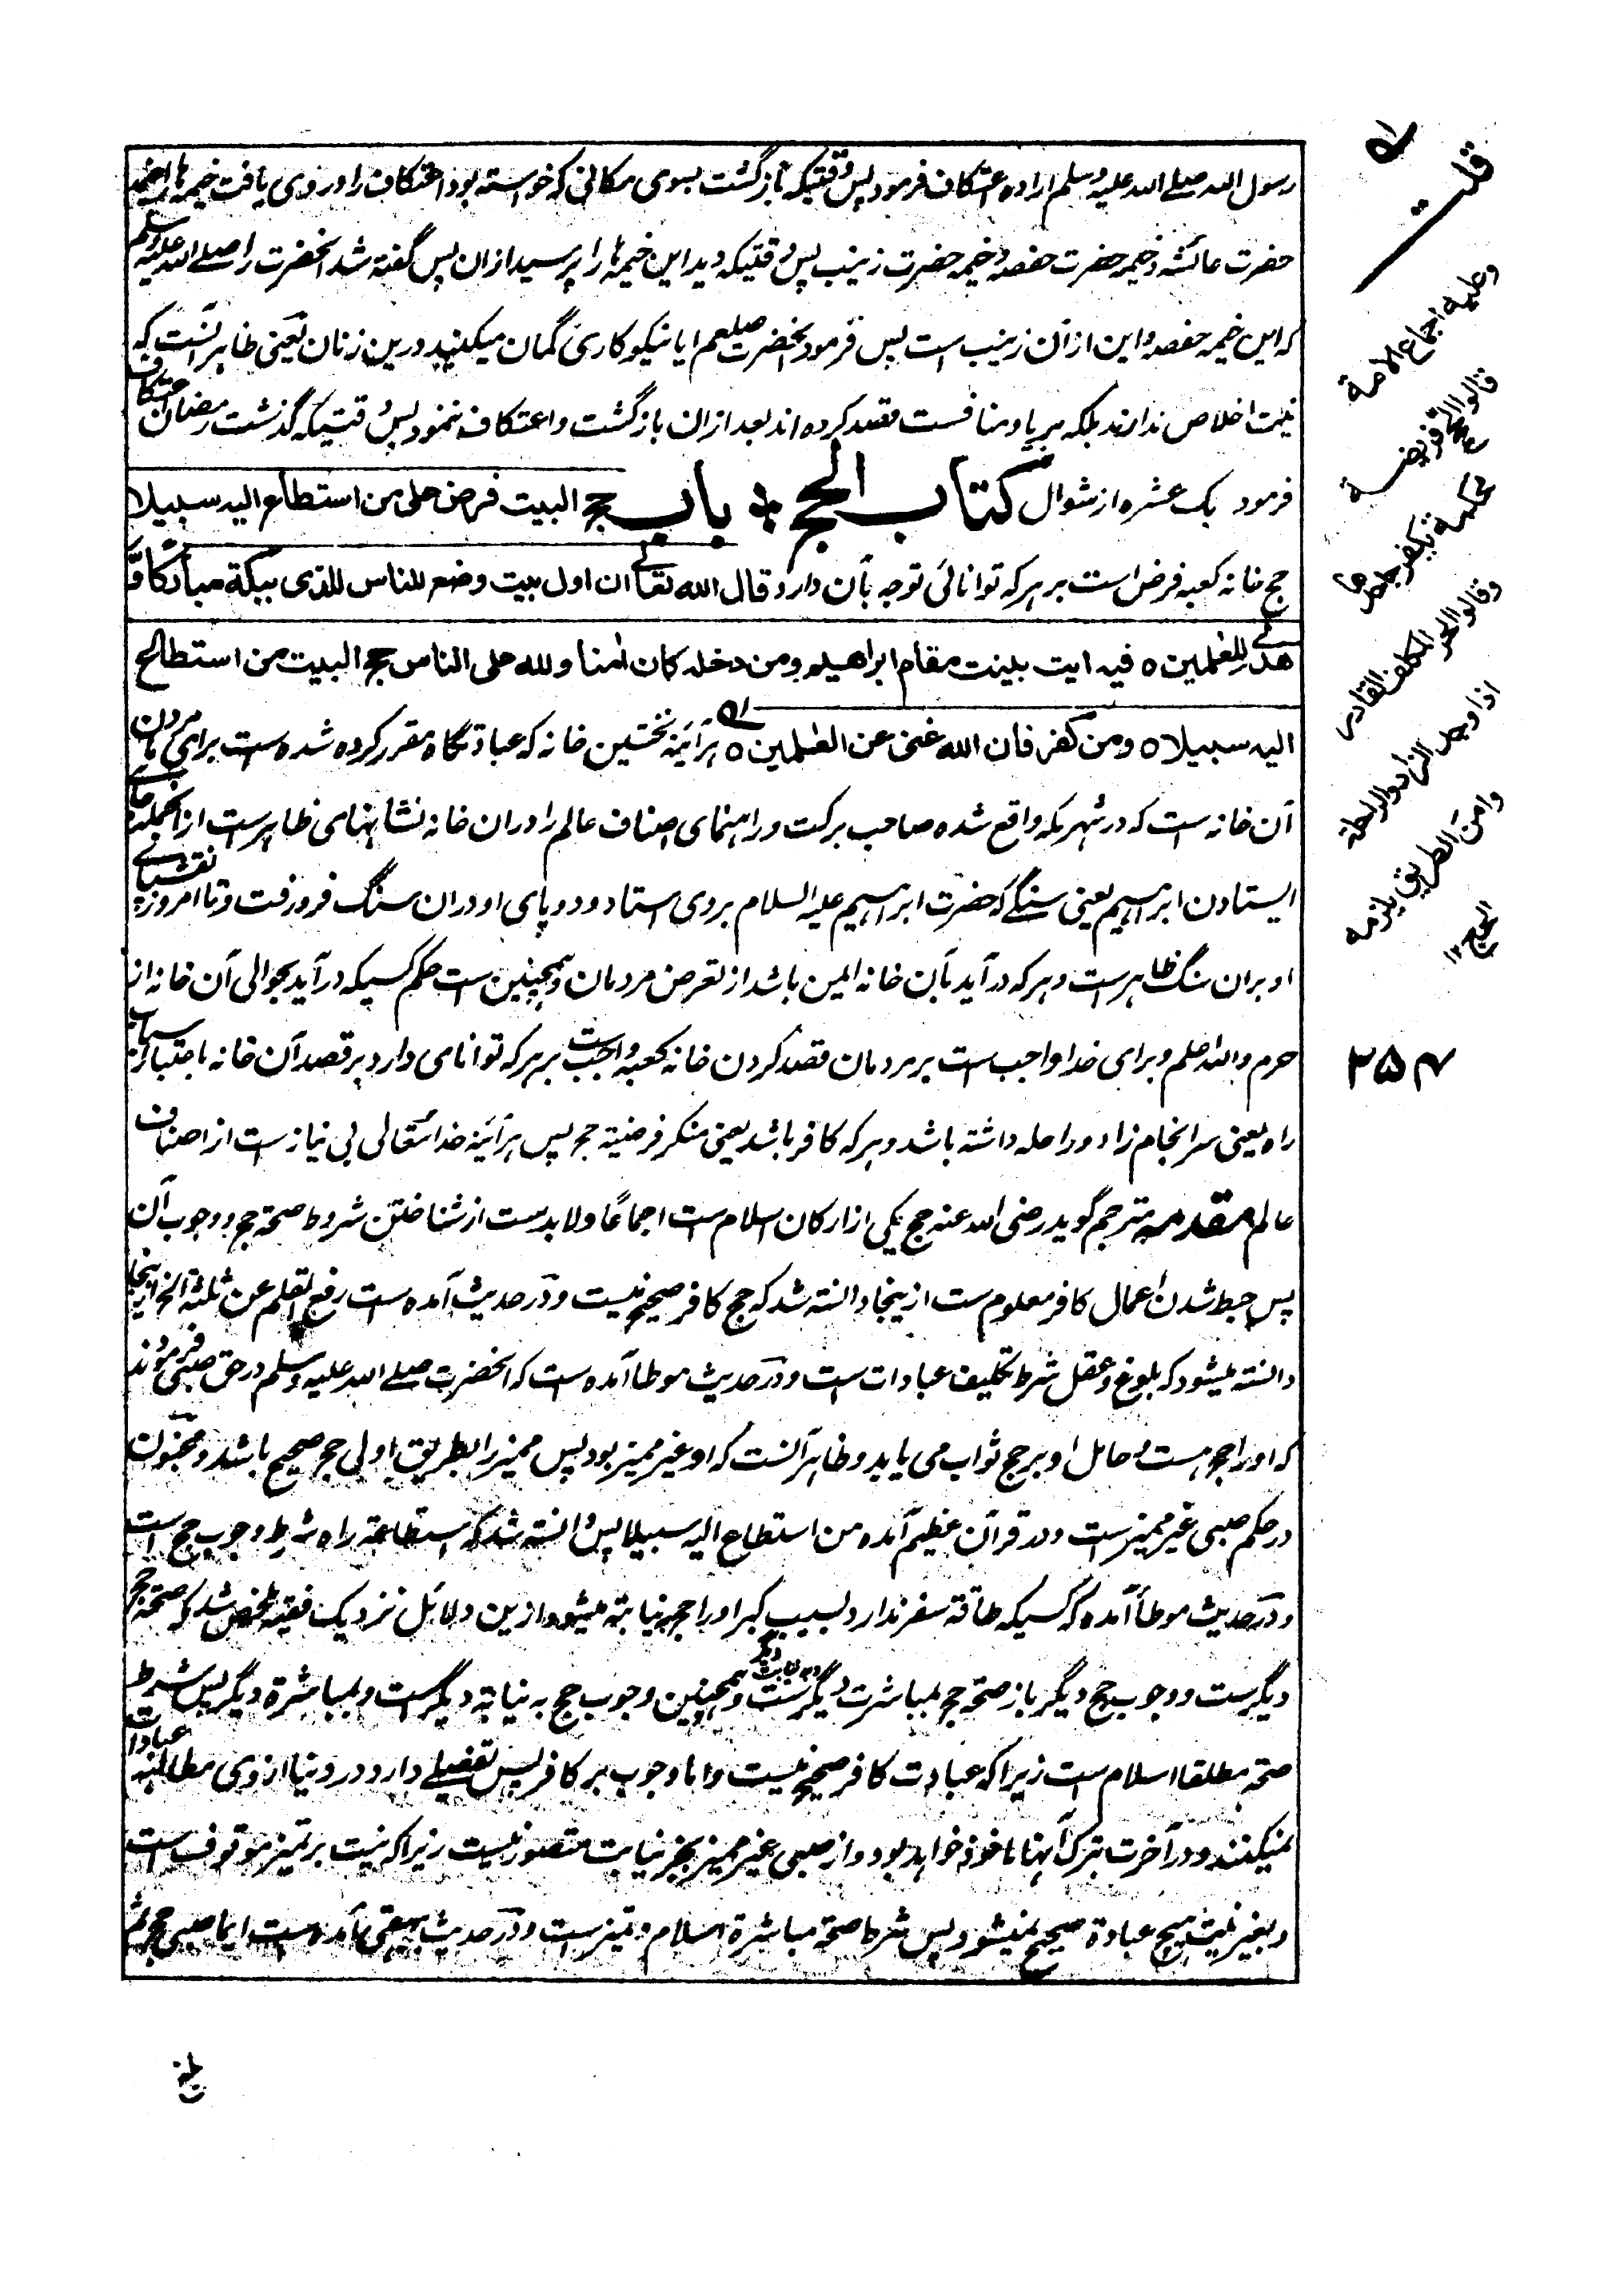 رسول الله صلے الله علیه وسلم اراده اعتکاف فرمود پس وقتیکه بازگشت بسوی مکانی که خواسته بود اعتکاف را در وی یافت خیمه ها را خیمه
حضرت عائشه و خیمه حضرت حفصه و خیمه حضرت زینب پس وقتیکه دید این خیمه ها را پرسید ازان پس گفته شد آنحضرت را صلے الله علیه وسلم
که این خیمه حفصه و این ازان زینب است پس فرمود آنحضرت صلعم ایا نیکوکاری گمان میکنید درین زنان یعنی ظاهر آنست که
نیت اخلاص ندارند بلکه بریا و منافست قصد کرده اند بعد ازان بازگشت و اعتکاف ننمود پس وقتیکه گذشت رمضان اعتکاف
فرمود یک عشره از شوال کتاب الحج ÷ باب حج البیت فرض علی من استطاع الیه سبیلا
حج خانه کعبه فرض است بر هر که توانائی توجه بآن دارد قال الله تعالے ان اول بیت وضع للناس للذی ببکة مبارکا و
هدے للعلمین ٥ فیه ایت بینت مقام ابراهیم ومن دخله کان امنا ولله علی الناس حج البیت من استطاع
الیه سبیلا ٥ ومن کفر فان الله غنی عن العلمین ٥ هرآئینه نخستین خانه که عبادتگاه مقرر کرده شده است برای مردمان
آن خانه است که در شهر مکه واقع شده صاحب برکت و راهنمای اصناف عالم را دران خانه نشانهای ظاهرست ازانجمله جای
ایستادن ابراهیم یعنی سنگے که حضرت ابراهیم علیه السلام بروی استاد و دو پای او دران سنگ فرو رفت و تا امروز نقش پای
او بران سنگ ظاهرست و هر که در آید بآن خانه ایمن باشد از تعرض مردمان و همچنین است حکم کسیکه در آید بحوالی آن خانه از
حرم والله اعلم و برای خدا واجب ست بر مردمان قصد کردن خانه کعبه واجبست بر هر که توانای دارد بر قصد آن خانه باعتبار اسباب
راه یعنی سرانجام زاد و راحله داشته باشد و هر که کافر باشد یعنی منکر فرضیة حج پس هرآئینه خدا تعالی بی نیاز ست از اصناف
عالم مقدمه مترجم گوید رضی الله عنه حج یکی از ارکان اسلام ست اجماعا و لا بدست از شناختن شروط صحة حج و وجوب آن
پس حبط شدن اعمال کافر معلوم ست ازینجا دانسته شد که حج کافر صحیح نیست و در حدیث آمده است رفع القلم عن ثلثة الخ ازینجا
دانسته میشود که بلوغ و عقل شرط تکلیف عبادات ست و در حدیث موطا آمده ست که آنحضرت صلے الله علیه وسلم در حق صبی فرمودند
که او را حج هست و حامل او بر حج ثواب می یابد و ظاهر آنست که او غیر ممیز بود پس ممیز را بطریق اولی حج صحیح باشد و مجنون
در حکم صبی غیر ممیزست و در قرآن عظیم آمده من استطاع الیه سبیلا پس دانسته شد که استطاعة راه شرط وجوب حج است
و در حدیث موطا آمده که کسیکه طاقة سفر ندارد بسبب کبر او را حج نیابته میشود ازین دلائل نزدیک فقیه ملخص شد که صحة حج
دیگرست و وجوب حج دیگر باز صحة حج بمباشرت دیگرست و به نیابت دیگر و همچنین وجوب حج به نیابة دیگرست و بمباشرة دیگر پس شرط
صحة مطلقا اسلام ست زیرا که عبادت کافر صحیح نیست و اما وجوب بر کافر پس تفصیلے دارد در دنیا از وی مطالبه عبادات
نمیکنند و در آخرت بترک آنها ماخوذ خواهد بود و از صبی غیر ممیز بجز نیابت متصور نیست زیرا که نیت بر تمیز موقوف ست
و بغیر نیت هیچ عبادة صحیح نمیشود پس شرط صحة مباشرة اسلام و تمیز ست و در حدیث بیهقی آمده ست ایما صبی حج ثم
قلت
وعلیه اجماع الامة
قالوا الحج فریضة
محکمة یکفر جاحدها
وقالوا الحر المکلف القادر
اذا وجد الزاد والراحلة
وامن الطریق یلزمه
الحج ١٢
٢٥٧